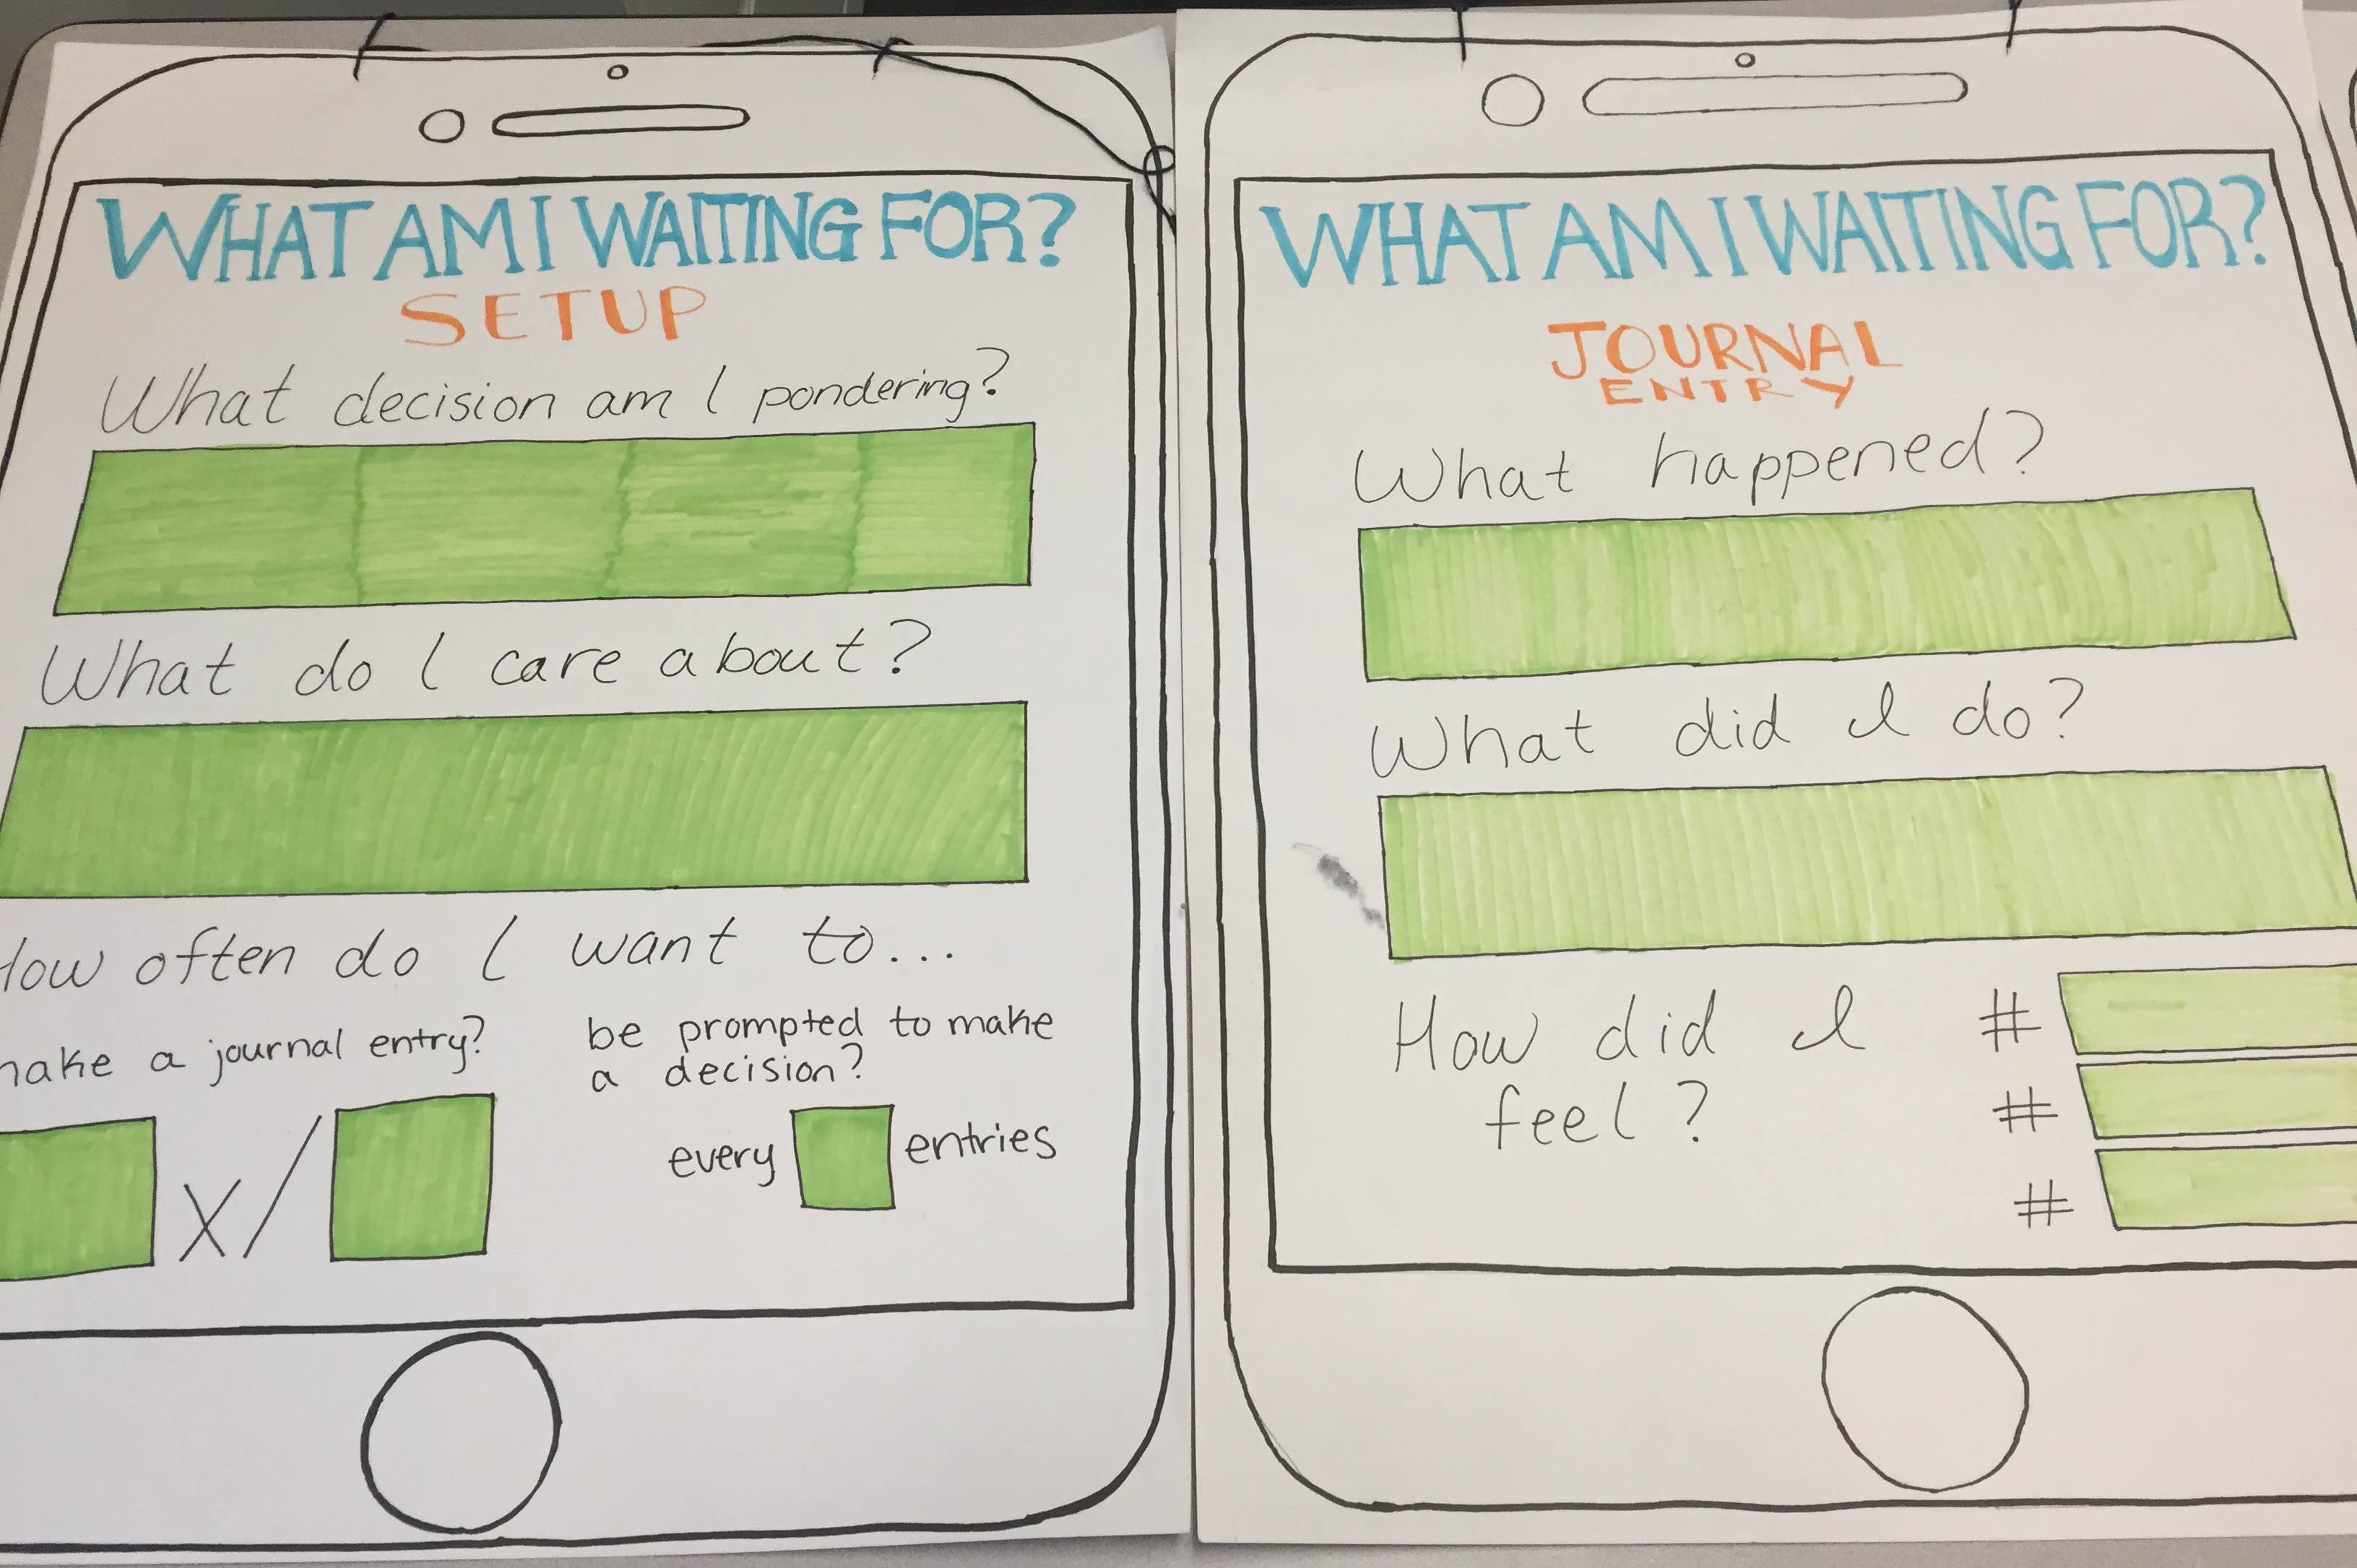 WHAT AM I WAITING FOR?
SETUP
What decision am I pondering?
What do I care about?
How often do I want to...
make a journal entry?
X/
be prompted to make
a decision?
every entries
WHAT AM I WAITING FOR?
JOURNAL
ENTRY
What happened?
What did I do?
How did I
feel?
#
#
#